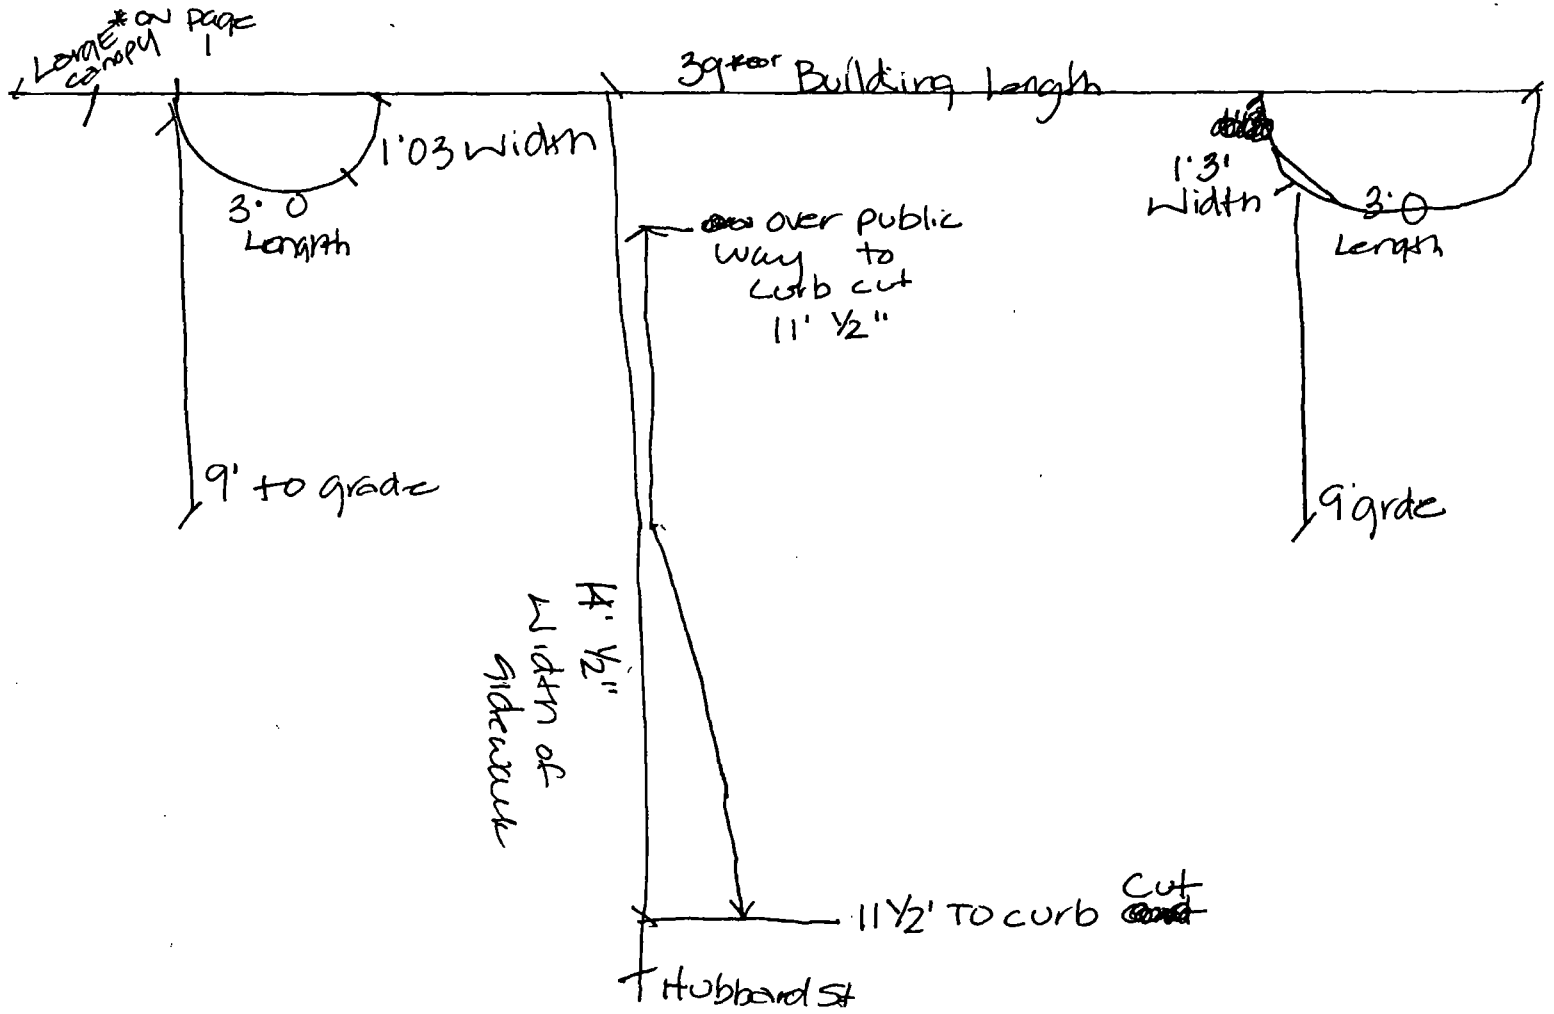 Large * on page
canopy 1
39 Building Length
1'03 Width
3'0
Length
1'3'
Width
3'0
Length
over public
way to
curb cut
11' 1/2"
9' to grade
9'grde
14' 1/2"
Width of
sidewalk
cut
11 1/2' TO curb
Hubbard St